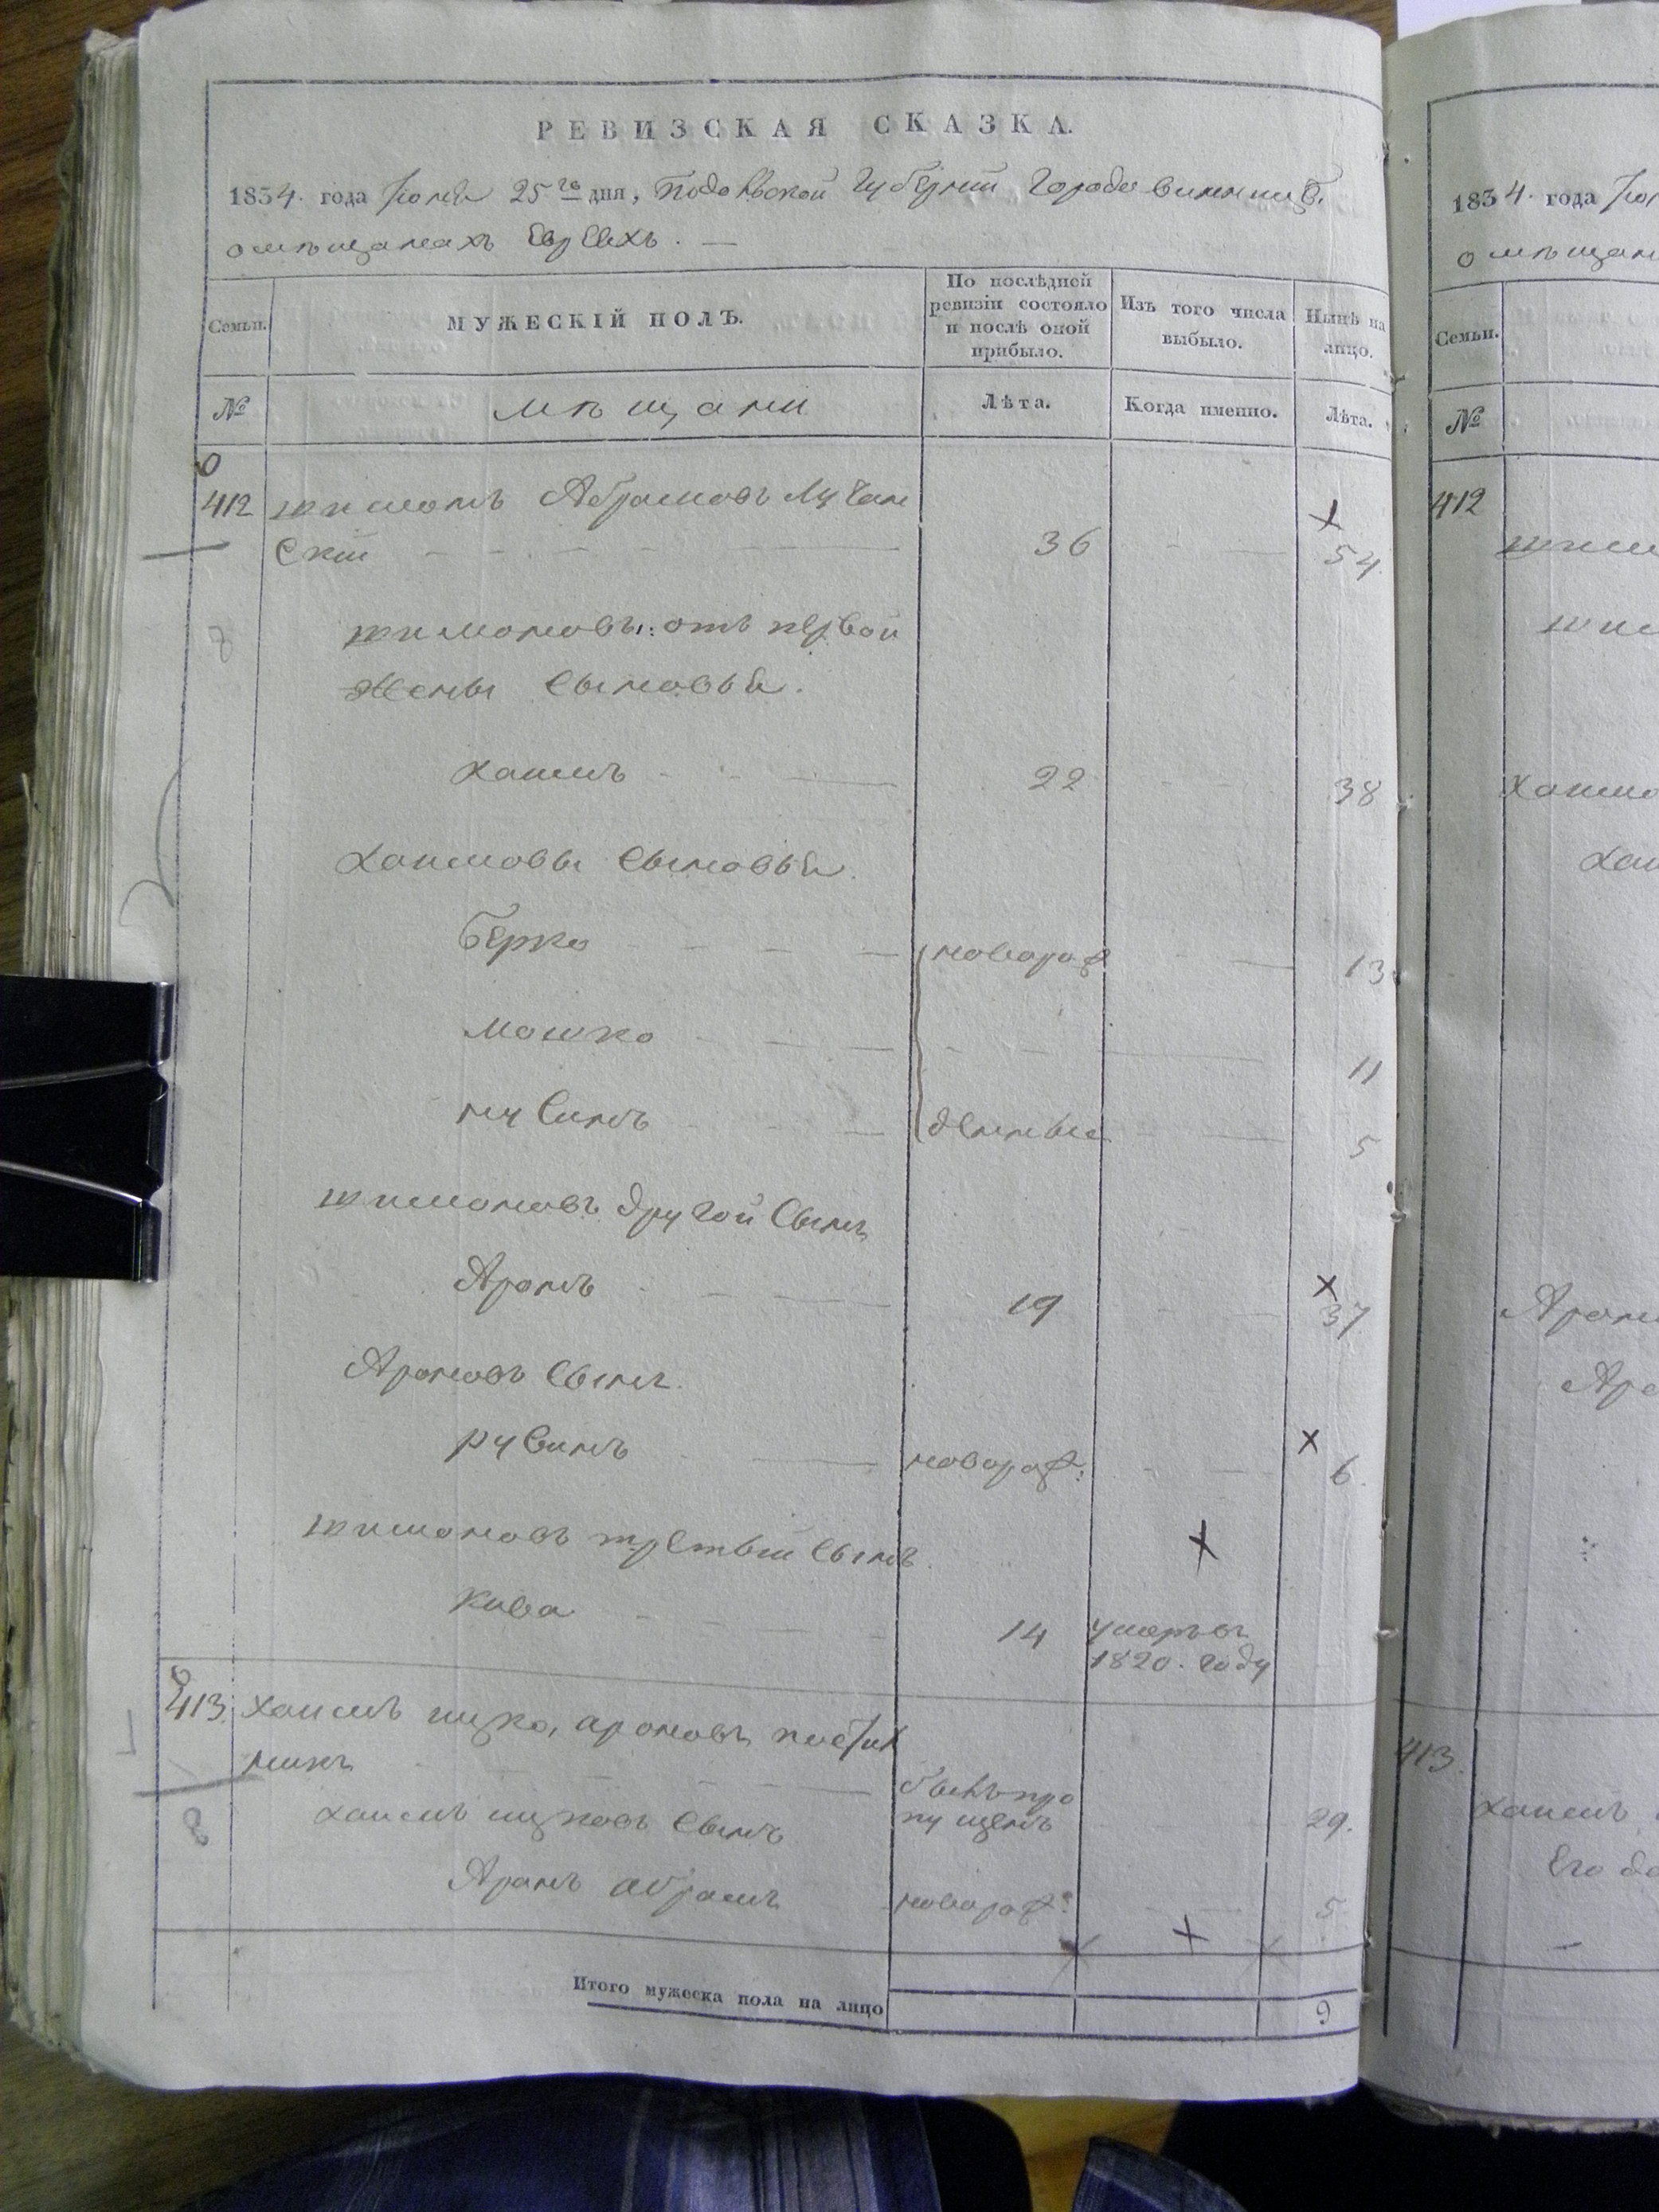 РЕВИЗСКАЯ СКАЗКА.
1834. года Июня 25го дня, Подольской Губерній Города Винницы.
о мѣщанахъ Евреяхъ. —
Семьи.
МУЖЕСКІЙ ПОЛЪ.
По послѣдней ревизіи состояло и послѣ оной прибыло.
Изъ того числа выбыло.
Нынѣ на лицо.
№
мѣщани
Лѣта.
Когда именно.
Лѣта.
412 Шимонъ Абрамовъ Лучан
скій 36 54.
Шимоновы: отъ первой
жены сыновья.
Хаимъ 22 38
Хаимовы сыновья.
Берко новорож 13
Мошко 11
нувинъ денные 5
Шимоновъ другой сынъ
Аронъ 19 37
Ароновъ сынъ.
рувинъ новорож: 6.
Шимоновъ третьій сынъ.
Кива 14 умеръ въ
1820. году
413. Хаимъ ицко, ароновъ
никъ былъ про
пущенъ 29.
Хаимъ ицковъ сынъ
Аронъ абрамъ новорож: 5
Итого мужеска пола на лицо 9
1834. года
о мѣщан
Семьи.
№
412
Хаимо
Хаи
Арон
Аро
413.
Хаимъ
Его до